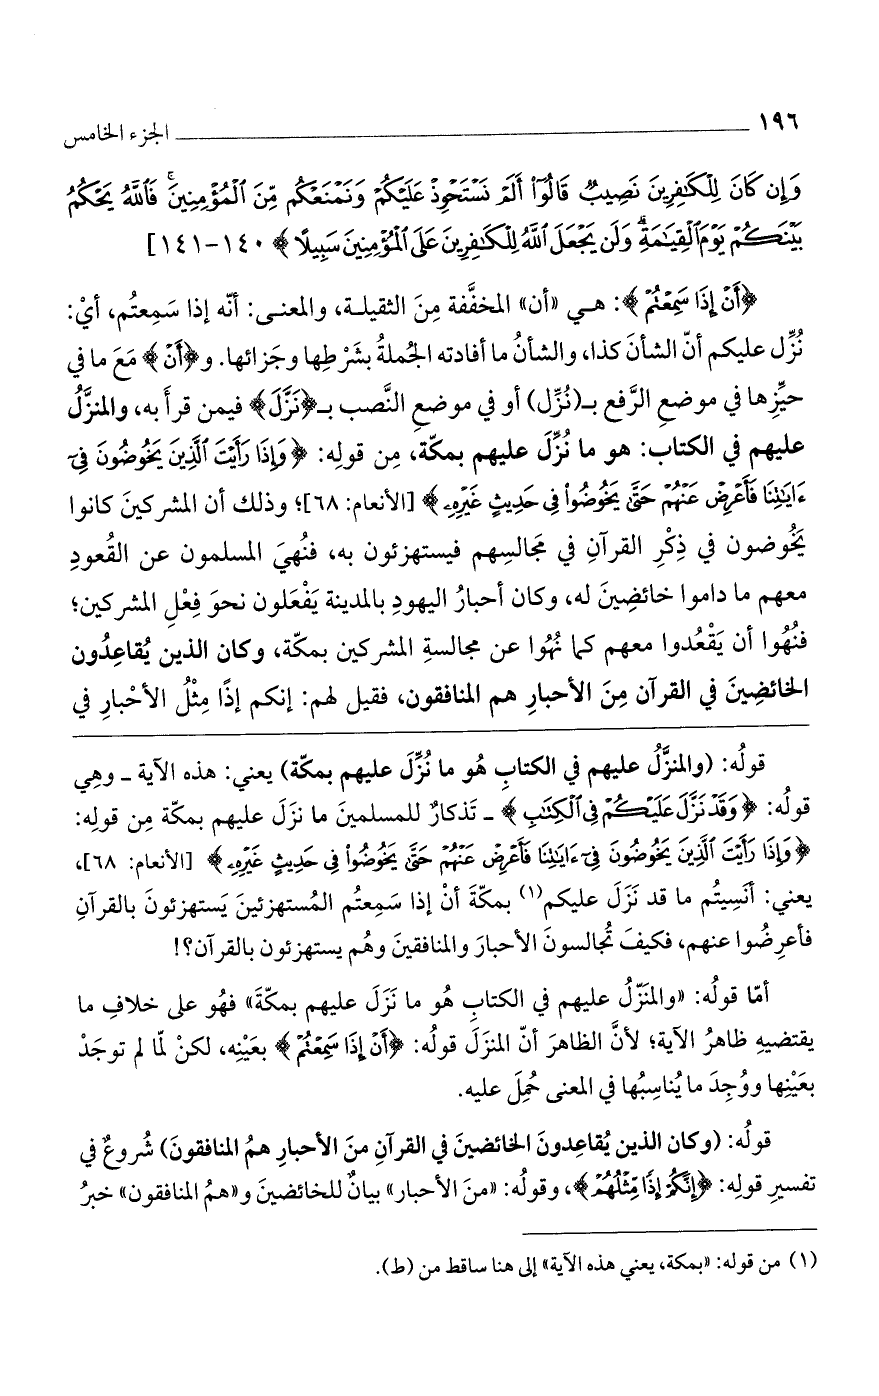 ١٩٦ الجزء الخامس
وَإِن كَانَ لِلْكَٰفِرِينَ نَصِيبٌ قَالُوٓا۟ أَلَمْ نَسْتَحْوِذْ عَلَيْكُمْ وَنَمْنَعْكُم مِّنَ ٱلْمُؤْمِنِينَ ۚ فَٱللَّهُ يَحْكُمُ
بَيْنَكُمْ يَوْمَ ٱلْقِيَٰمَةِ ۗ وَلَن يَجْعَلَ ٱللَّهُ لِلْكَٰفِرِينَ عَلَى ٱلْمُؤْمِنِينَ سَبِيلًا ﴾ ١٤٠-١٤١]
﴿أَنْ إِذَا سَمِعْتُمْ ﴾: هـي «أن» المخفَّفة مِنَ الثقيلـة، والمعنـى: أنّه إذا سَمِعتُم، أيْ:
نُزِّل عليكم أنّ الشأنَ كذا، والشأنُ ما أفادته الجُملةُ بشَرْطِها وجَزائها. و﴿أَنْ ﴾ مَعَ ما في
حيِّزِها في موضعِ الرَّفع بـ(نُزِّل) أو في موضعِ النَّصب بـ﴿نَزَّلَ﴾ فيمن قرأَ به، والمنزَّلُ
عليهم في الكتاب: هو ما نُزِّلَ عليهم بمكّة، مِن قولِه: ﴿وَإِذَا رَأَيْتَ ٱلَّذِينَ يَخُوضُونَ فِىٓ
ءَايَٰتِنَا فَأَعْرِضْ عَنْهُمْ حَتَّىٰ يَخُوضُوا۟ فِى حَدِيثٍ غَيْرِهِۦ ﴾ [الأنعام: ٦٨]؛ وذلك أن المشركينَ كانوا
يَخُوضون في ذِكْرِ القرآنِ في مَجَالسِهم فيستهزئون به، فنُهيَ المسلمون عن القُعودِ
معهم ما داموا خائضِينَ له، وكان أحبارُ اليهودِ بالمدينة يَفْعَلون نحوَ فِعْلِ المشركين؛
فنُهُوا أن يَقْعُدوا معهم كما نُهُوا عن مجالسةِ المشركين بمكّة، وكان الذين يُقاعِدُون
الخائضِينَ في القرآن مِنَ الأحبارِ هم المنافقون، فقيل لهم: إنكم إذًا مِثْلُ الأحْبارِ في
قولُه: (والمنزَّلُ عليهم في الكتابِ هُو ما نُزِّلَ عليهم بمكّة) يعني: هذه الآية ـ وهِي
قولُه: ﴿وَقَدْ نَزَّلَ عَلَيْكُمْ فِى ٱلْكِتَٰبِ ﴾ ـ تَذكارٌ للمسلمينَ ما نزَلَ عليهم بمكّة مِن قولِه:
﴿وَإِذَا رَأَيْتَ ٱلَّذِينَ يَخُوضُونَ فِىٓ ءَايَٰتِنَا فَأَعْرِضْ عَنْهُمْ حَتَّىٰ يَخُوضُوا۟ فِى حَدِيثٍ غَيْرِهِۦ ﴾ [الأنعام: ٦٨]،
يعني: أنَسِيتُم ما قد نَزَلَ عليكم(١) بمكّةَ أنْ إذا سَمِعتُم المُستهزئينَ يَستهزئونَ بالقرآنِ
فأعرِضُوا عنهم، فكيفَ تُجالسونَ الأحبارَ والمنافقينَ وهُم يستهزئون بالقرآن؟!
أمّا قولُه: «والمنَزّلُ عليهم في الكتابِ هُو ما نَزَلَ عليهم بمكّةَ» فهُو على خلافِ ما
يقتضيهِ ظاهرُ الآية؛ لأنَّ الظاهرَ أنّ المنزَلَ قولُه: ﴿أَنْ إِذَا سَمِعْتُمْ ﴾ بعَيْنِه، لكنْ لمّا لم توجَدْ
بعَيْنِها ووُجِدَ ما يُناسِبُها في المعنى حُمِلَ عليه.
قولُه: (وكان الذين يُقاعِدونَ الخائضينَ في القرآنِ منَ الأحبارِ همُ المنافقونَ) شُروعٌ في
تفسيرِ قولِه: ﴿إِنَّكُمْ إِذًا مِّثْلُهُمْ ﴾، وقولُه: «منَ الأحبار» بيانٌ للخائضينَ و«همُ المنافقون» خبرُ
(١) من قوله: «بمكة، يعني هذه الآية» إلى هنا ساقط من (ط).